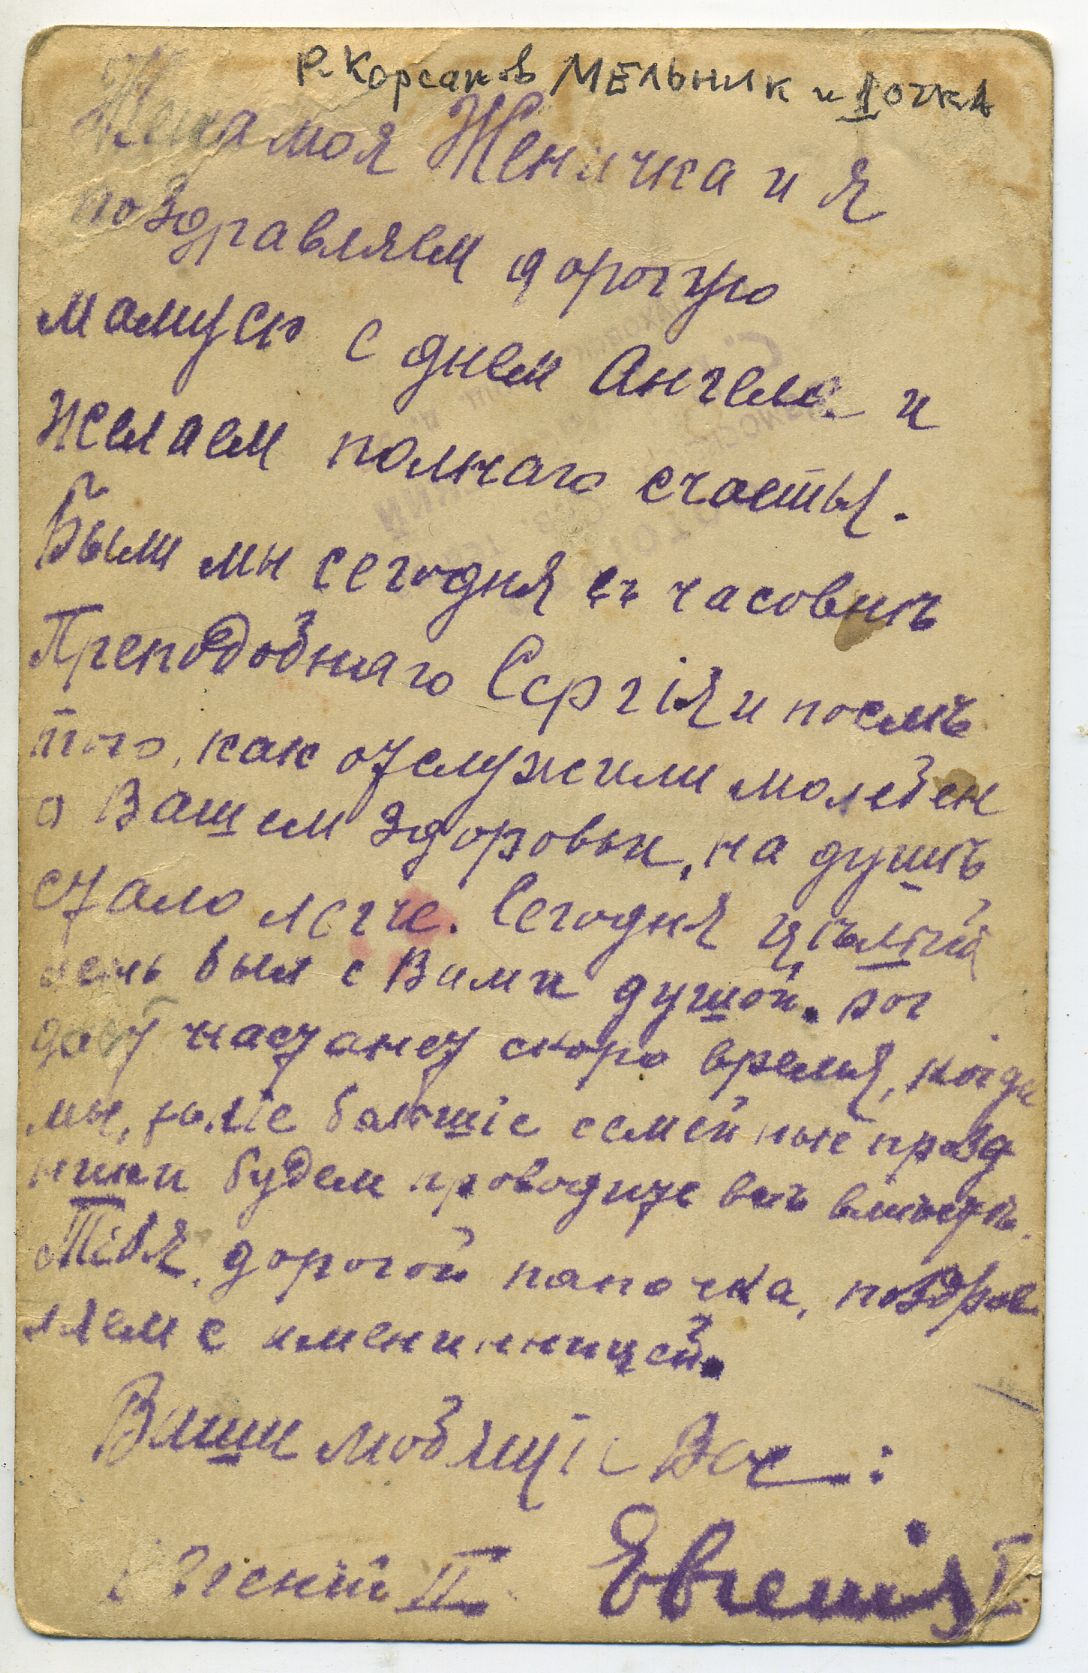 Р. Корсаков МЕЛЬНИК и ДОЧКА
Жена моя Женичка и я
поздравляем дорогую
мамусю с днем Ангела и
желаем полнаго счастья.
Были мы сегодня въ часовнѣ
Преподобнаго Сергія и послѣ
того, как отслужили молебен
о Вашем здоровьи, на душѣ
стало легче. Сегодня цѣлый
день был с Вами душой. Бог
даст настанет скоро время, когда
мы, большіе семейные празд
ники будем проводить всѣ вмѣстѣ.
Тебя, дорогой папочка, поздрав
ляем с именинницей.
Ваши любящіе Вас:
Евгеній II Евгенія I